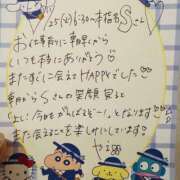 25(火)6:30~本指名Sさん
お仕事前に朝早くから
いつも本当にありがとう♡
またすぐに会えてHAPPYでした♡
朝からSさんの笑顔見ると
「よし！今日もがんばるぞー！」となります♡
また会えることを楽しみにしています♡
やえ